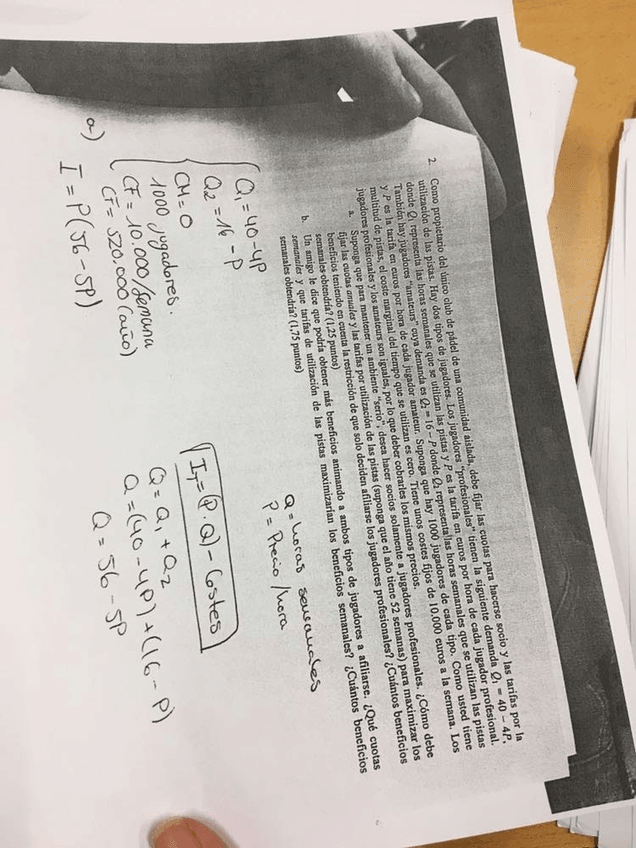 2. Como propietario del único club de pádel de una comunidad aislada, debe fijar las cuotas para hacerse socio y las tarifas por la
utilización de las pistas. Hay dos tipos de jugadores. Los jugadores "profesionales" tienen la siguiente demanda Q₁ = 40 – 4P,
donde Q₁ representa las horas semanales que se utilizan las pistas y P es la tarifa en euros por hora de cada jugador profesional.
También hay jugadores "amateurs" cuya demanda es Q₂ = 16 – P donde Q₂ representa las horas semanales que se utilizan las pistas
y P es la tarifa en euros por hora de cada jugador amateur. Suponga que hay 1000 jugadores de cada tipo. Como usted tiene
multitud de pistas, el coste marginal del tiempo que se utilizan es cero. Tiene unos costes fijos de 10.000 euros a la semana. Los
jugadores profesionales y los amateurs son iguales, por lo que deber cobrarles los mismos precios.
a. Suponga que para mantener un ambiente "serio", desea hacer socios solamente a jugadores profesionales. ¿Cómo debe
fijar las cuotas anuales y las tarifas por utilización de las pistas (suponga que el año tiene 52 semanas) para maximizar los
beneficios teniendo en cuenta la restricción de que solo deciden afiliarse los jugadores profesionales? ¿Cuántos beneficios
semanales obtendría? (1,25 puntos)
b. Un amigo le dice que podría obtener más beneficios animando a ambos tipos de jugadores a afiliarse. ¿Qué cuotas
semanales y que tarifas de utilización de las pistas maximizarían los beneficios semanales? ¿Cuántos beneficios
semanales obtendría? (1,75 puntos)
Q = horas semanales
P = Precio/hora
Q₁ = 40 - 4P
Q₂ = 16 - P
CM = 0
1000 jugadores.
CF = 10.000/semana
CF = 520.000 (año)
IT = (P·Q) - Costes
Q = Q₁ + Q₂
Q = (40 - 4P) + (16 - P)
Q = 56 - 5P
a)
I = P(56 - 5P)